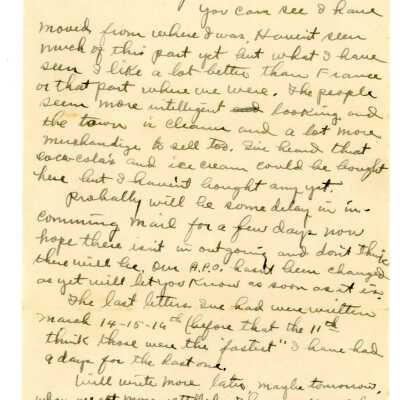 You can see I have
moved from where I was. Haven't seen
much of this part yet but what I have
seen I like a lot better than France
or that part where we were. The people
seem more intelligent and looking and
the town is cleaner and a lot more
merchandize to sell too. I've heard that
coca-cola's and ice cream could be bought
here but I haven't bought any yet.
Probally will be some delay in in-
comming mail for a few days now
hope there isn't in outgoing and don't think
there will be. Our A.P.O. hasn't been changed
as yet will let you know as soon as it is.
The last letters I've had were written
March 14-15-16th (before that the 11th
think those were the "fastest" I have had
9 days for the last one.
Will write more later, maybe tomorrow,
when we get more settled